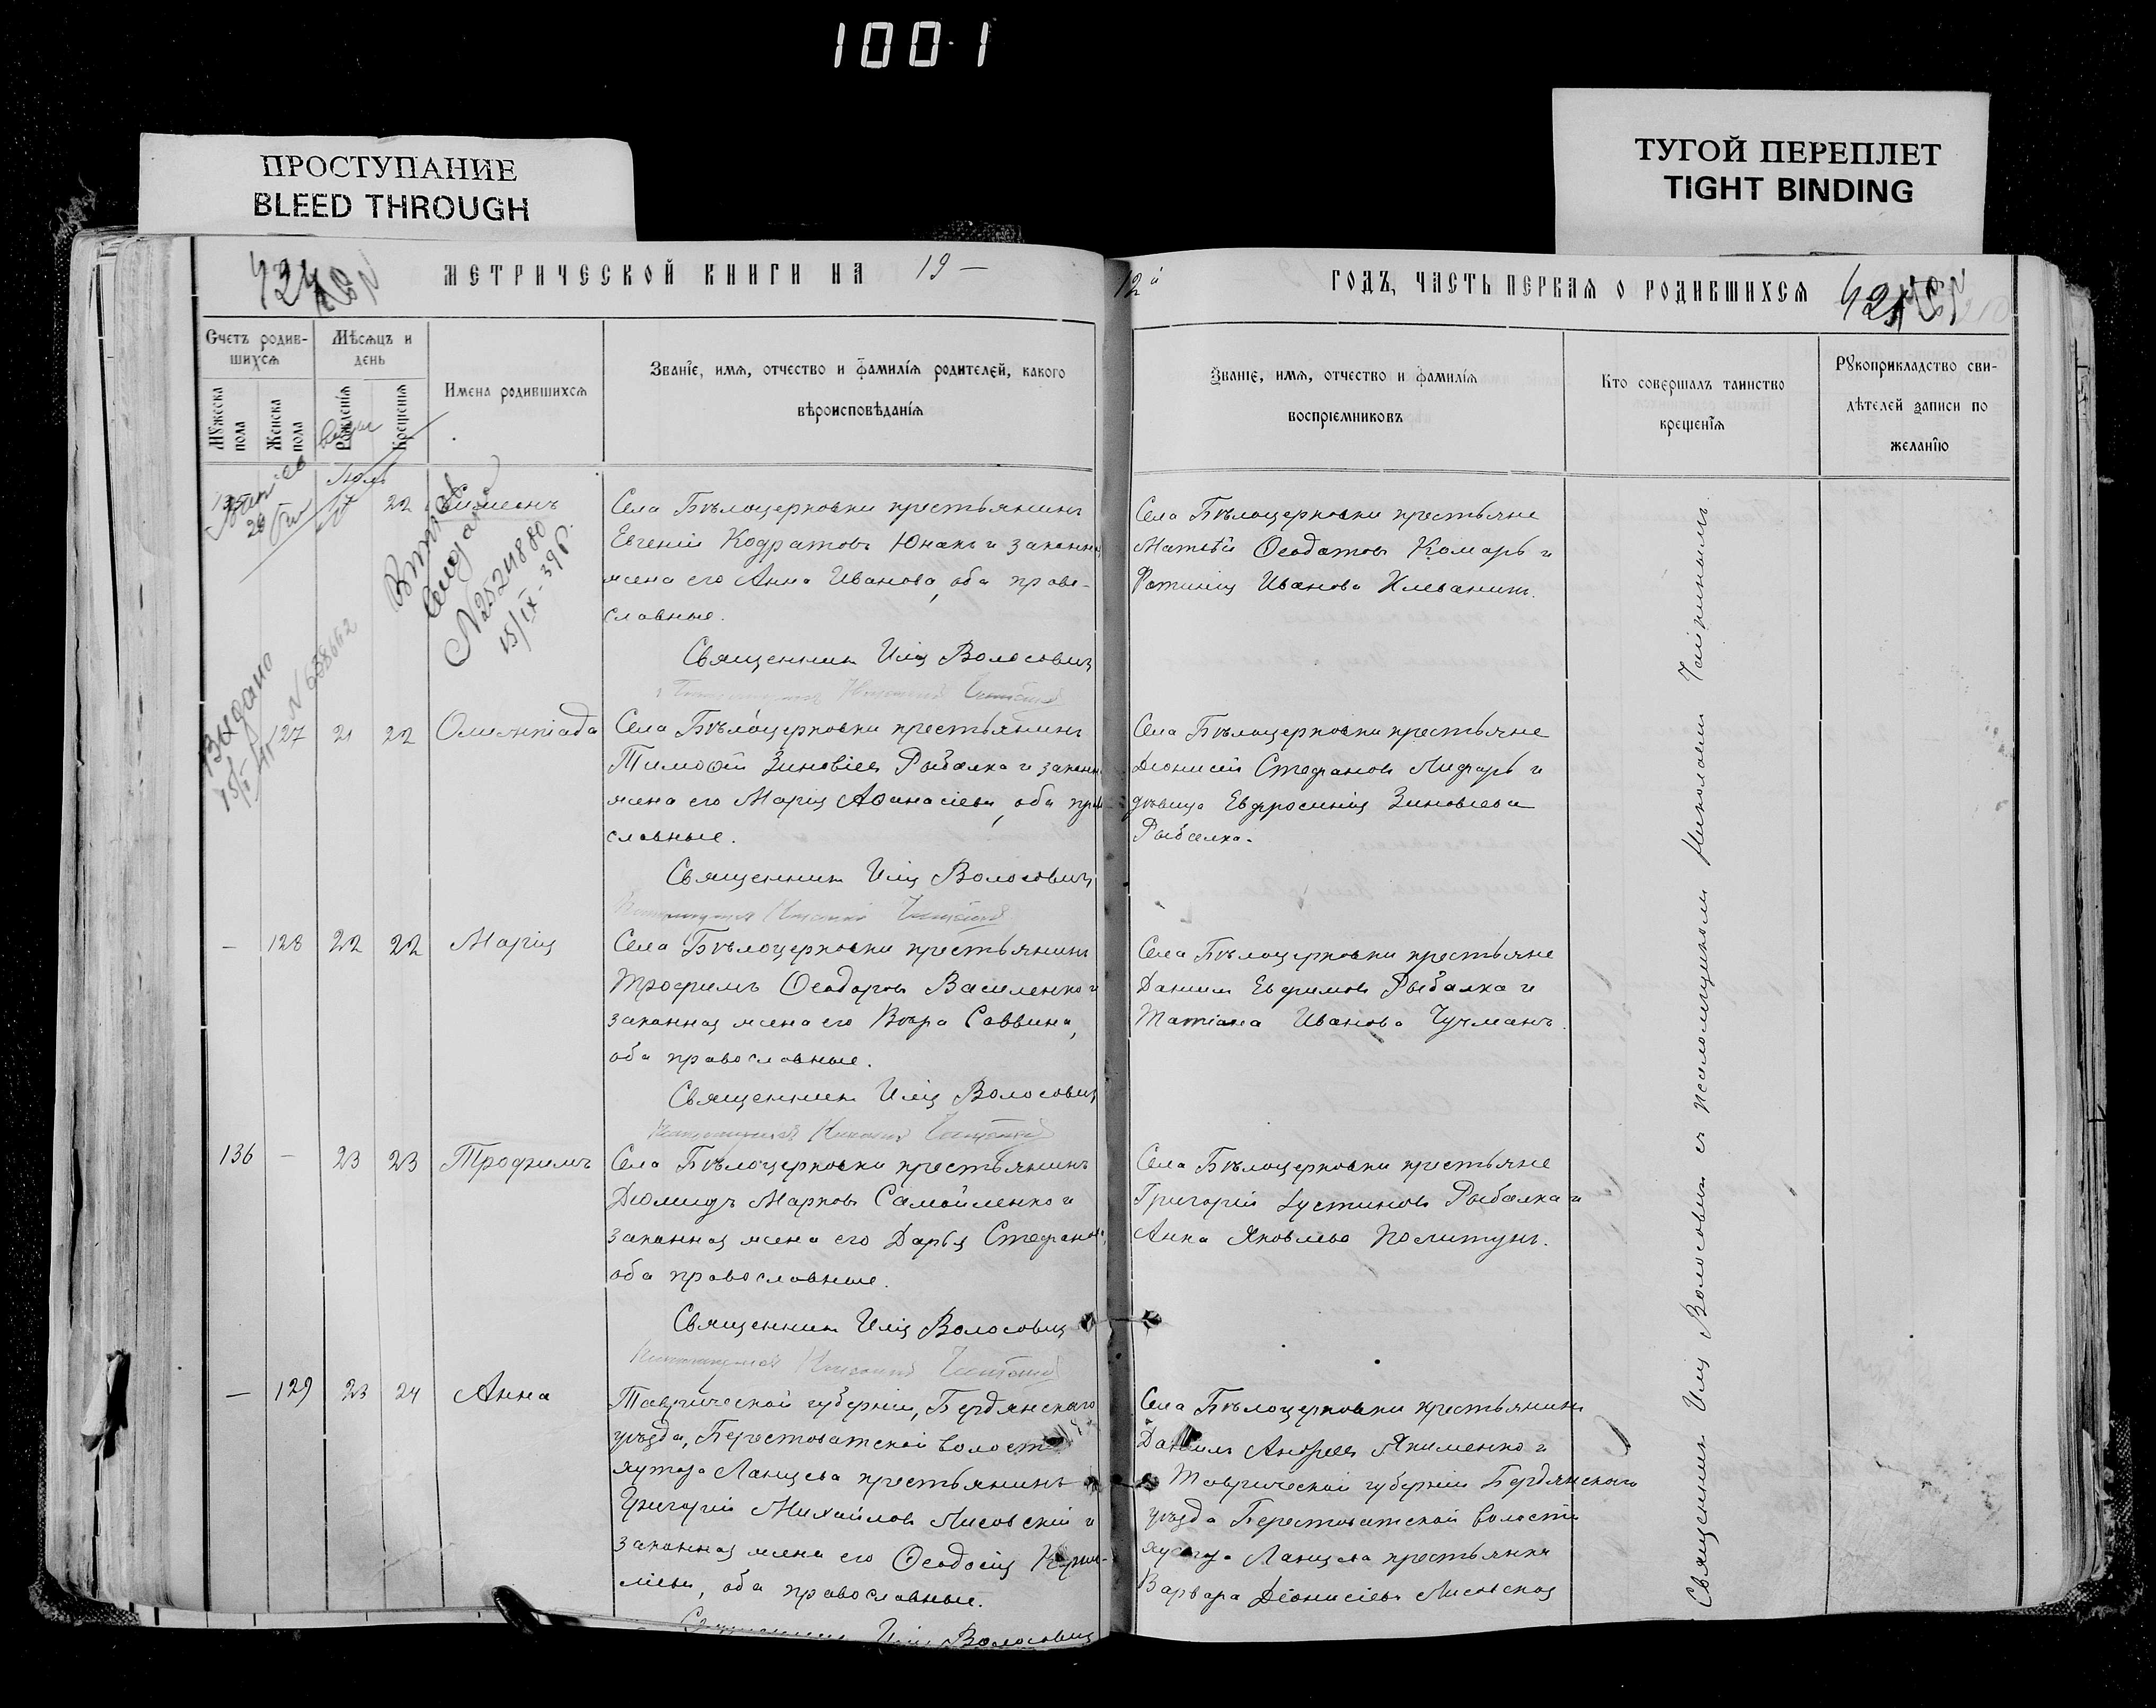 100-1
ПРОСТУПАНИЕ
BLEED THROUGH
ТУГОЙ ПЕРЕПЛЕТ
TIGHT BINDING
МЕТРИЧЕСКОЙ КНИГИ НА 19 —
12й ГОДЪ, ЧАСТЬ ПЕРВАЯ О РОДИВШИХСЯ
Счетъ родив-
шихся
Мѣсяцъ и
день
Мужеска
пола
Женска
пола
Рожденія
Крещенія
Имена родившихся
Званіе, имя, отчество и фамилія родителей, какого
вѣроисповѣданія
Званіе, имя, отчество и фамилія
воспріемниковъ
Кто совершалъ таинство
крещенія
Рукоприкладство сви-
дѣтелей записи по
желанію
Іюль
135 17 22 Симеонъ
Села Бѣлоцерковки крестьянинъ
Евгеній Кодратовъ Юнакъ и законна
жена его Анна Иванова, оба право-
славные.
Священникъ Илія Волосовичъ
Села Бѣлоцерковки крестьяне
Матѳѣй Ѳеодотовъ Комаръ и
Фотинія Иванова
№ 2524880
15/IX-39 г.
Выдано
№ 688662
127 21 22 Олимпіада
Села Бѣлоцерковки крестьянинъ
Тимоѳей Зиновіевъ Рыбалка и законн
жена его Марія Аѳанасіева, оба прав
славные.
Священникъ Илія Волосовичъ
Села Бѣлоцерковки крестьяне
Діонисій Стефановъ Лифарь и
дѣвица Евфросинія Зиновіева
Рыбалка.
— 128 22 22 Марія
Села Бѣлоцерковки крестьянинъ
Трофимъ Ѳеодоровъ Василенко и
законная жена его Вѣра Саввина,
оба православные.
Священникъ Илія Волосовичъ
Села Бѣлоцерковки крестьяне
Даніилъ Евфимовъ Рыбалка и
Татіана Иванова Чучманъ.
136 — 23 23 Трофимъ
Села Бѣлоцерковки крестьянинъ
Діомидъ Марковъ Самойленко и
законная жена его Дарья Стефанова,
оба православные.
Священникъ Илія Волосовичъ
Села Бѣлоцерковки крестьяне
Григорій Іустиновъ Рыбалка и
Анна Яковлева Политунъ.
— 129 23 24 Анна
Таврической губерніи, Бердянскаго
уѣзда, Берестоватской волости
хутора Ланцева крестьянинъ
Григорій Михайловъ Лисовскій и
законная жена его Ѳеодосія
оба православные.
Священникъ Илія Волосовичъ
Села Бѣлоцерковки крестьянинъ
Даніилъ Андреевъ Якименко и
Таврической губерніи Бердянскаго
уѣзда Берестоватской волости
хутора Ланцева крестьянка
Варвара Діонисіева Лисовская
Священникъ Илія Волосовичъ съ псаломщикомъ Николаемъ